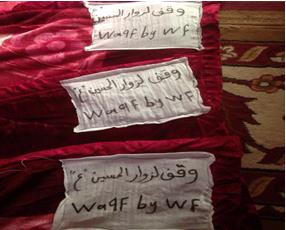 وقف لزوار الحسين
Waqf by WF
وقف لزوار الحسين "ع"
Waqf by WF
وقف لزوار الحسين "ع"
Waqf by WF